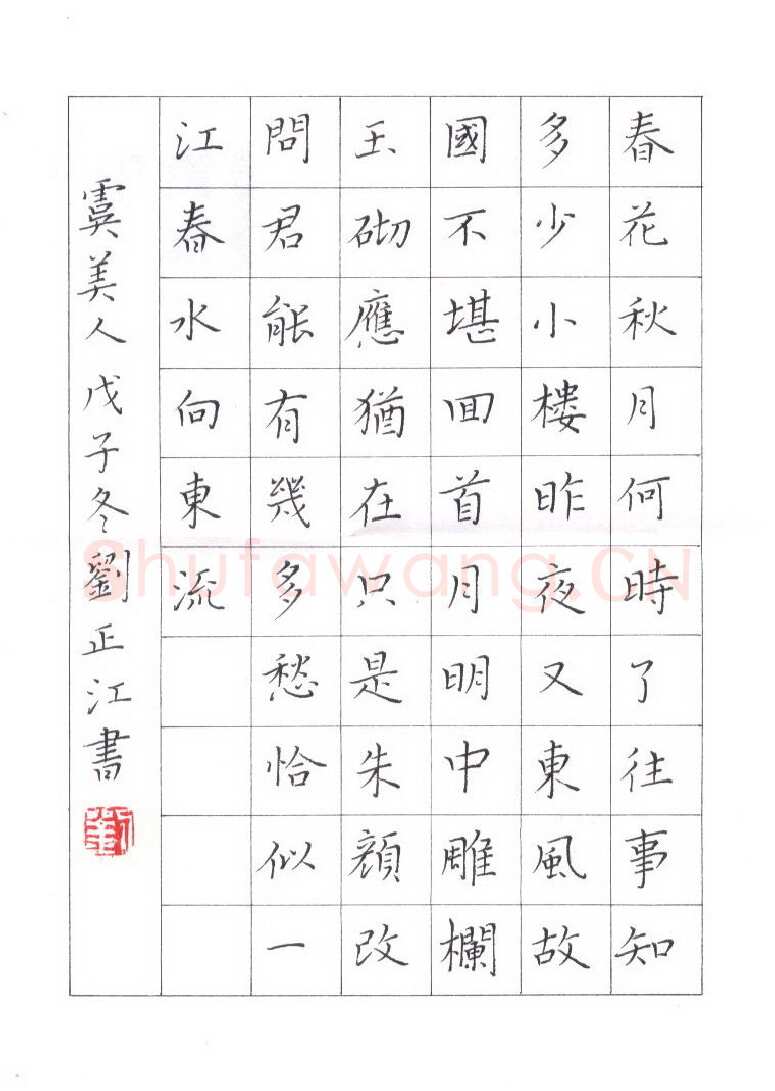 春花秋月何時了往事知
多少小樓昨夜又東風故
國不堪回首月明中雕欄
玉砌應猶在只是朱顏改
問君能有幾多愁恰似一
江春水向東流
虞美人 戊子冬 劉正江書
劉
Shufawang.CN